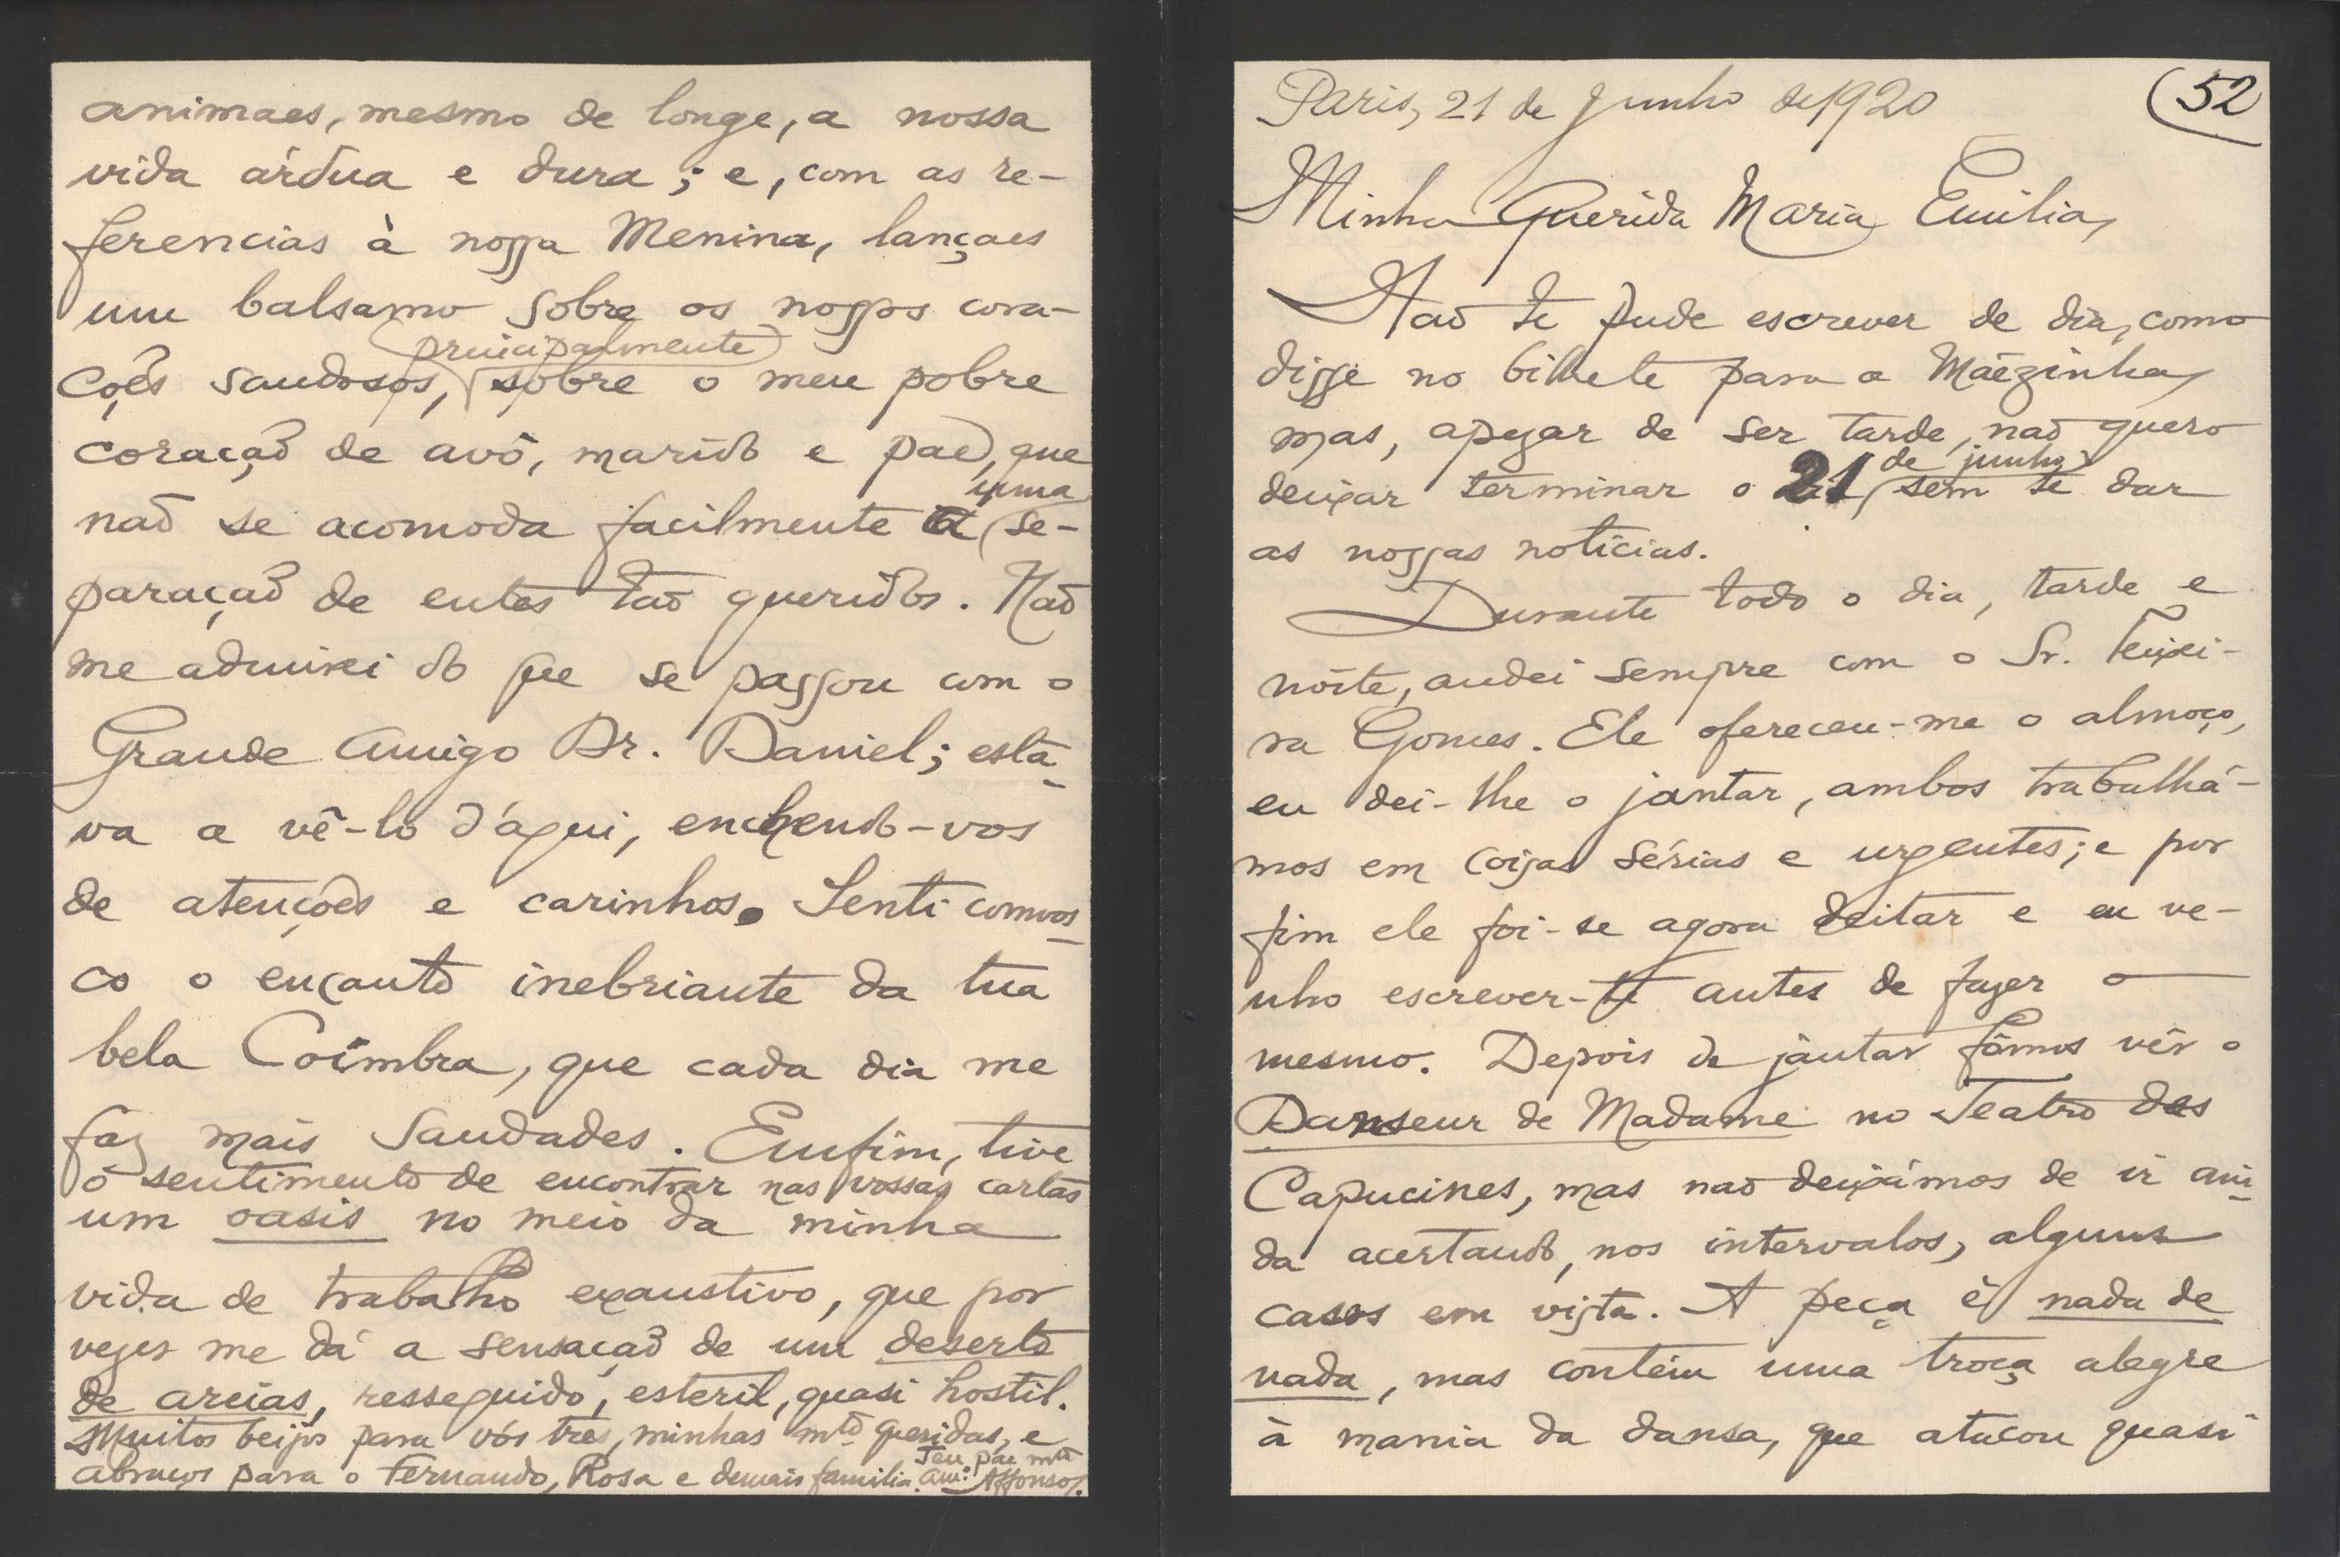 animaes, mesmo de longe, a nossa
vida árdua e dura; e, com as re-
ferencias à nossa Menina, lançaes
um balsamo sobre os nossos cora-
ções saudosos, (principalmente) sobre o meu pobre
coração de avô, marido e pae, que
não se acomoda facilmente a uma se-
paração de entes tão queridos. Não
me admirei do que se passou com o
Grande Amigo Dr. Daniel; esta-
va a vê-lo d'aqui, enchendo-vos
de atenções e carinhos. Senti comvos-
co o encanto inebriante da tua
bela Coímbra, que cada dia me
faz mais saudades. Emfim, tive
o sentimento de encontrar nas vossas cartas
um oasis no meio da minha
vida de trabalho exaustivo, que por
vezes me dá a sensação de um deserto
de areias, resseguido, esteril, quasi hostil.
Muitos beijos para vós tres, minhas mtº queridas, e
abraços para o Fernando, Rosa e demais familia. Teu pae mtº
am:º Affonso.
Paris, 21 de Junho de 1920
(52
Minha Querida Maria Emilia,
Não te pude escrever de dia, como
disse no bilhete para a Mãezinha,
mas, apezar de ser tarde, não quero
deixar terminar o 21 de junho sem te dar
as nossas notícias.
Durante todo o dia, tarde e
nóite, andei sempre com o Sr. Teixei-
ra Gomes. Ele ofereceu-me o almoço,
eu dei-lhe o jantar, ambos trabalhá-
mos em coisas sérias e urgentes; e por
fim ele foi-se agora deitar e eu ve-
nho escrever-te antes de fazer o
mesmo. Depois de jantar fômos vêr o
Danseur de Madame no Teatro des
Capucines, mas não deixámos de ir ain-
da acertando, nos intervalos, alguns
casos em vista. A peça é nada de
nada, mas contém uma troça alegre
à mania da dansa, que atacou quasi